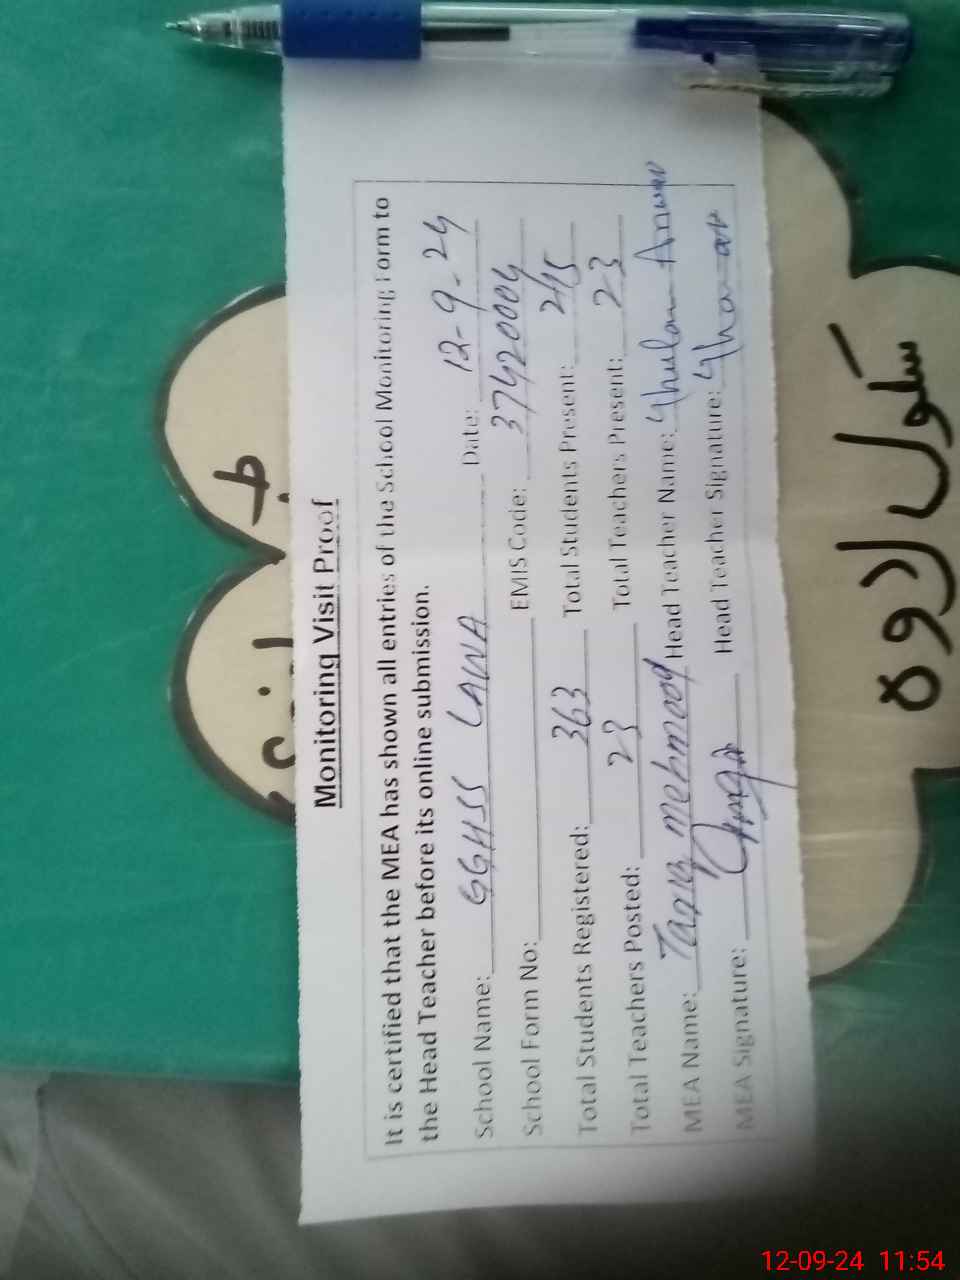 Monitoring Visit Proof
It is certified that the MEA has shown all entries of the School Monitoring Form to
the Head Teacher before its online submission.
School Name: GGHSS LAWA Date: 12-9-24
School Form No: EMIS Code: 37420004
Total Students Registered: 363 Total Students Present: 215
Total Teachers Posted: 23 Total Teachers Present: 23
MEA Name: Tariq mehmood Head Teacher Name: Ghulam Anwar
MEA Signature: Head Teacher Signature:
سکول لاوہ
12-09-24 11:54